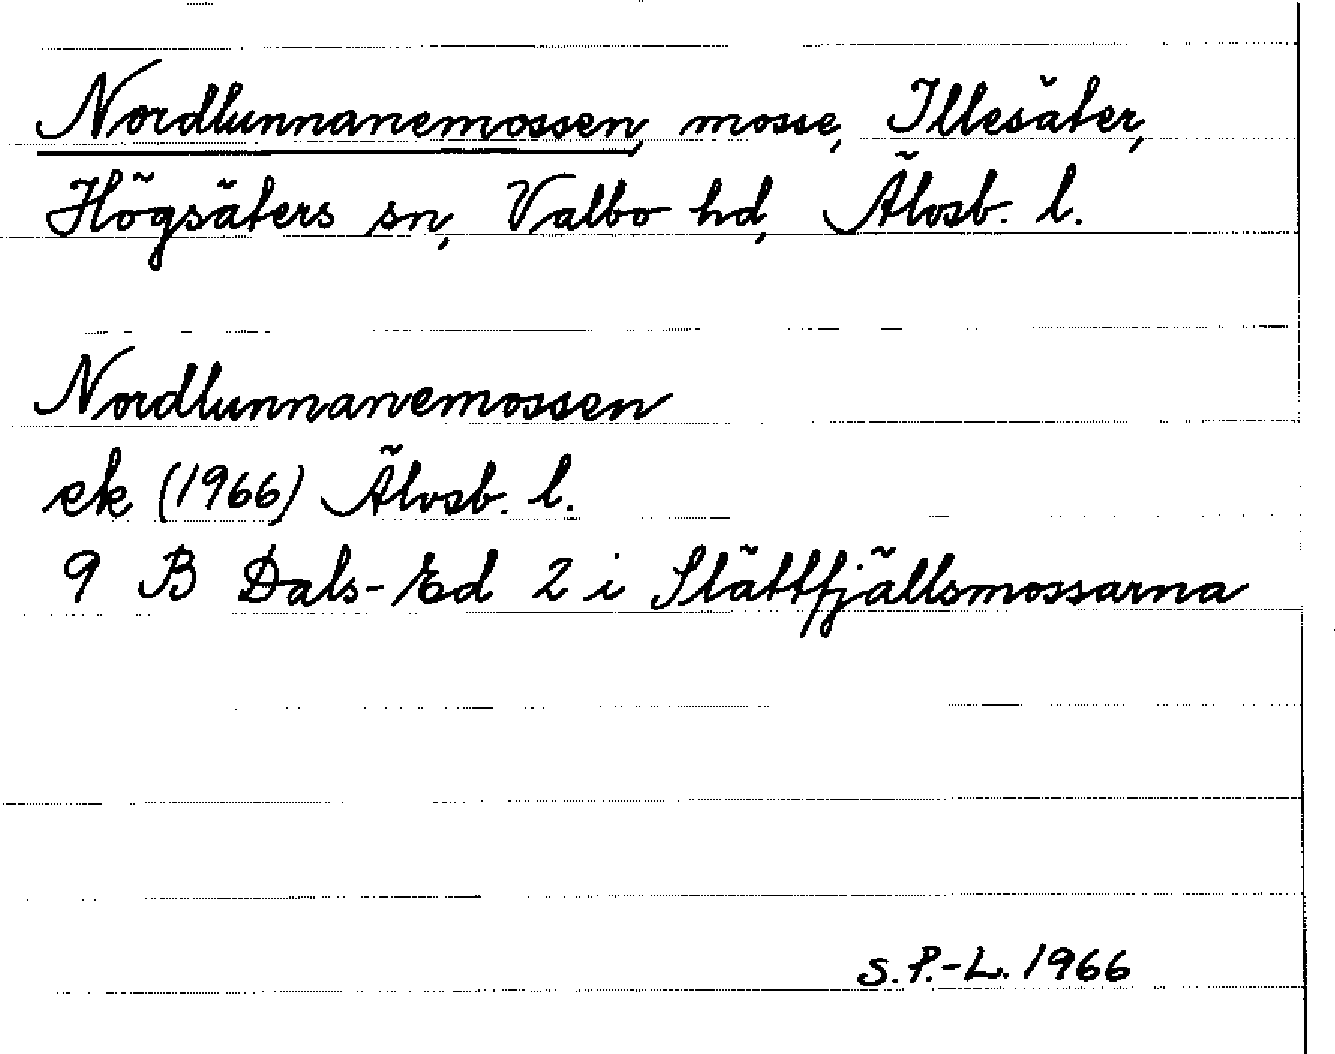 Nordlunnanemossen, mosse, Illesäter,
Högsäters sn, Valbo hd, Älvsb. l.
Nordlunnanemossen
ek (1966) Älvsb. l.
9 B Dals-Ed 2 i Slättfjällsmossarna
S.P.-L. 1966